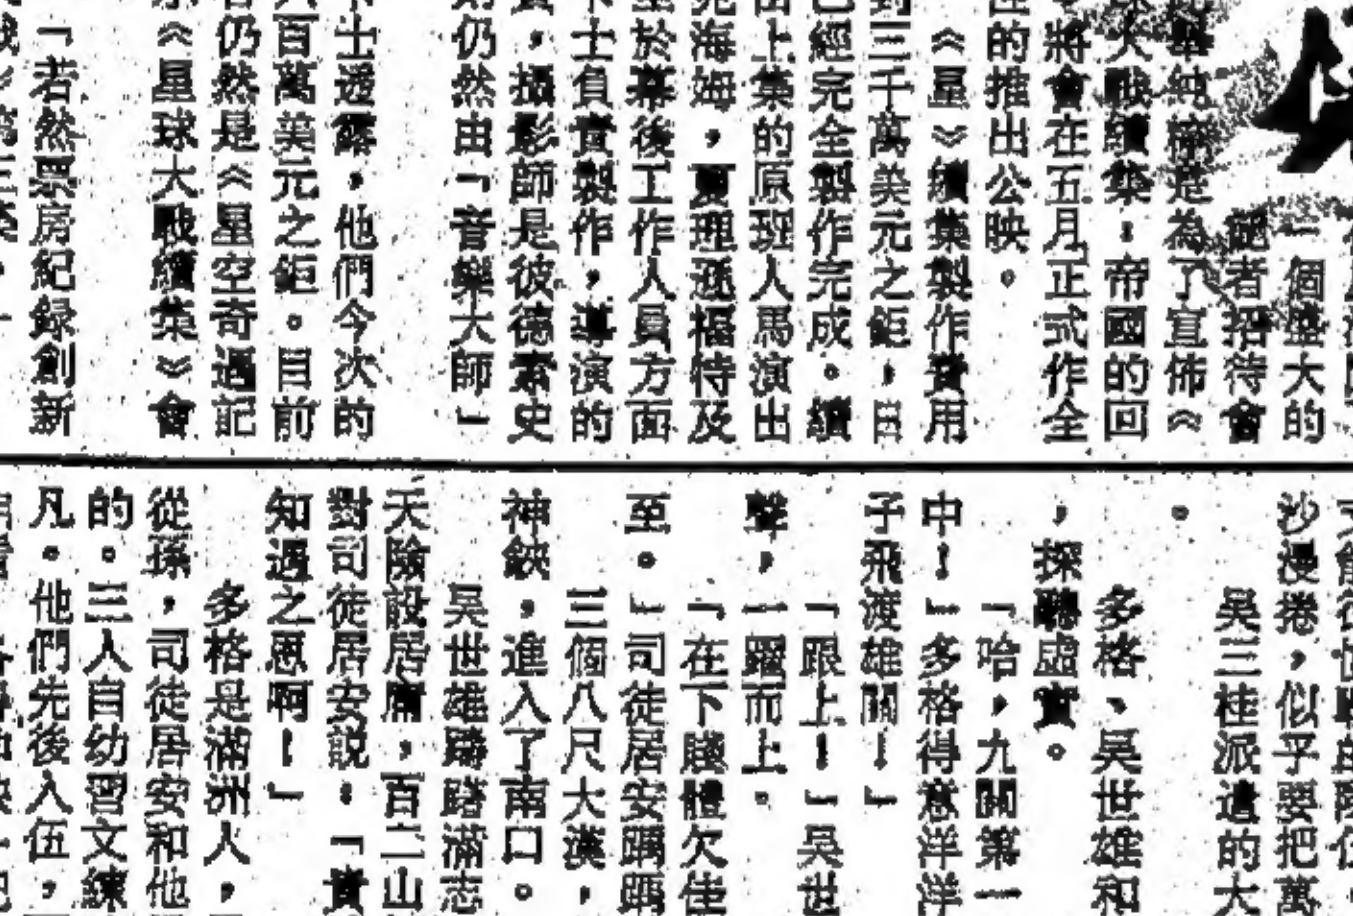 一個盛大的
記者招待會
單純樑是為了宣佈《
大戰續集：帝國的回
將會在五月正式作全
的推出公映。
《星》續集製作費用
三千萬美元之鉅，目
經完全製作完成。續
上集的原班人馬演出
海姆，夏理遜福特及
於幕後工作人員方面
士負責製作，導演的
，攝影師是彼德索史
仍然由「音樂大師」
士透露，他們今次的
百萬美元之鉅。目前
仍然是《星空奇遇記
《星球大戰續集》會
「若然票房紀録創新
沙漫捲，似乎要把萬
吳三桂派遣的大
。
多格、吳世雄和
，探聽虛實。
「哈，九關第一
中！」多格得意洋洋
子飛渡雄關！」
「跟上！」吳世
聲，一躍而上。
「在下賤體欠佳
至。」司徒居安踽踽
三個八尺大漢，
神鋏，進入了南口。
吳世雄躊躇滿志
天險設居庸，百二山
對司徒居安説：「貴
知遇之恩啊！」
多格是滿洲人，
從孫，司徒居安和他
的。三人自幼習文練
凡。他們先後入伍，